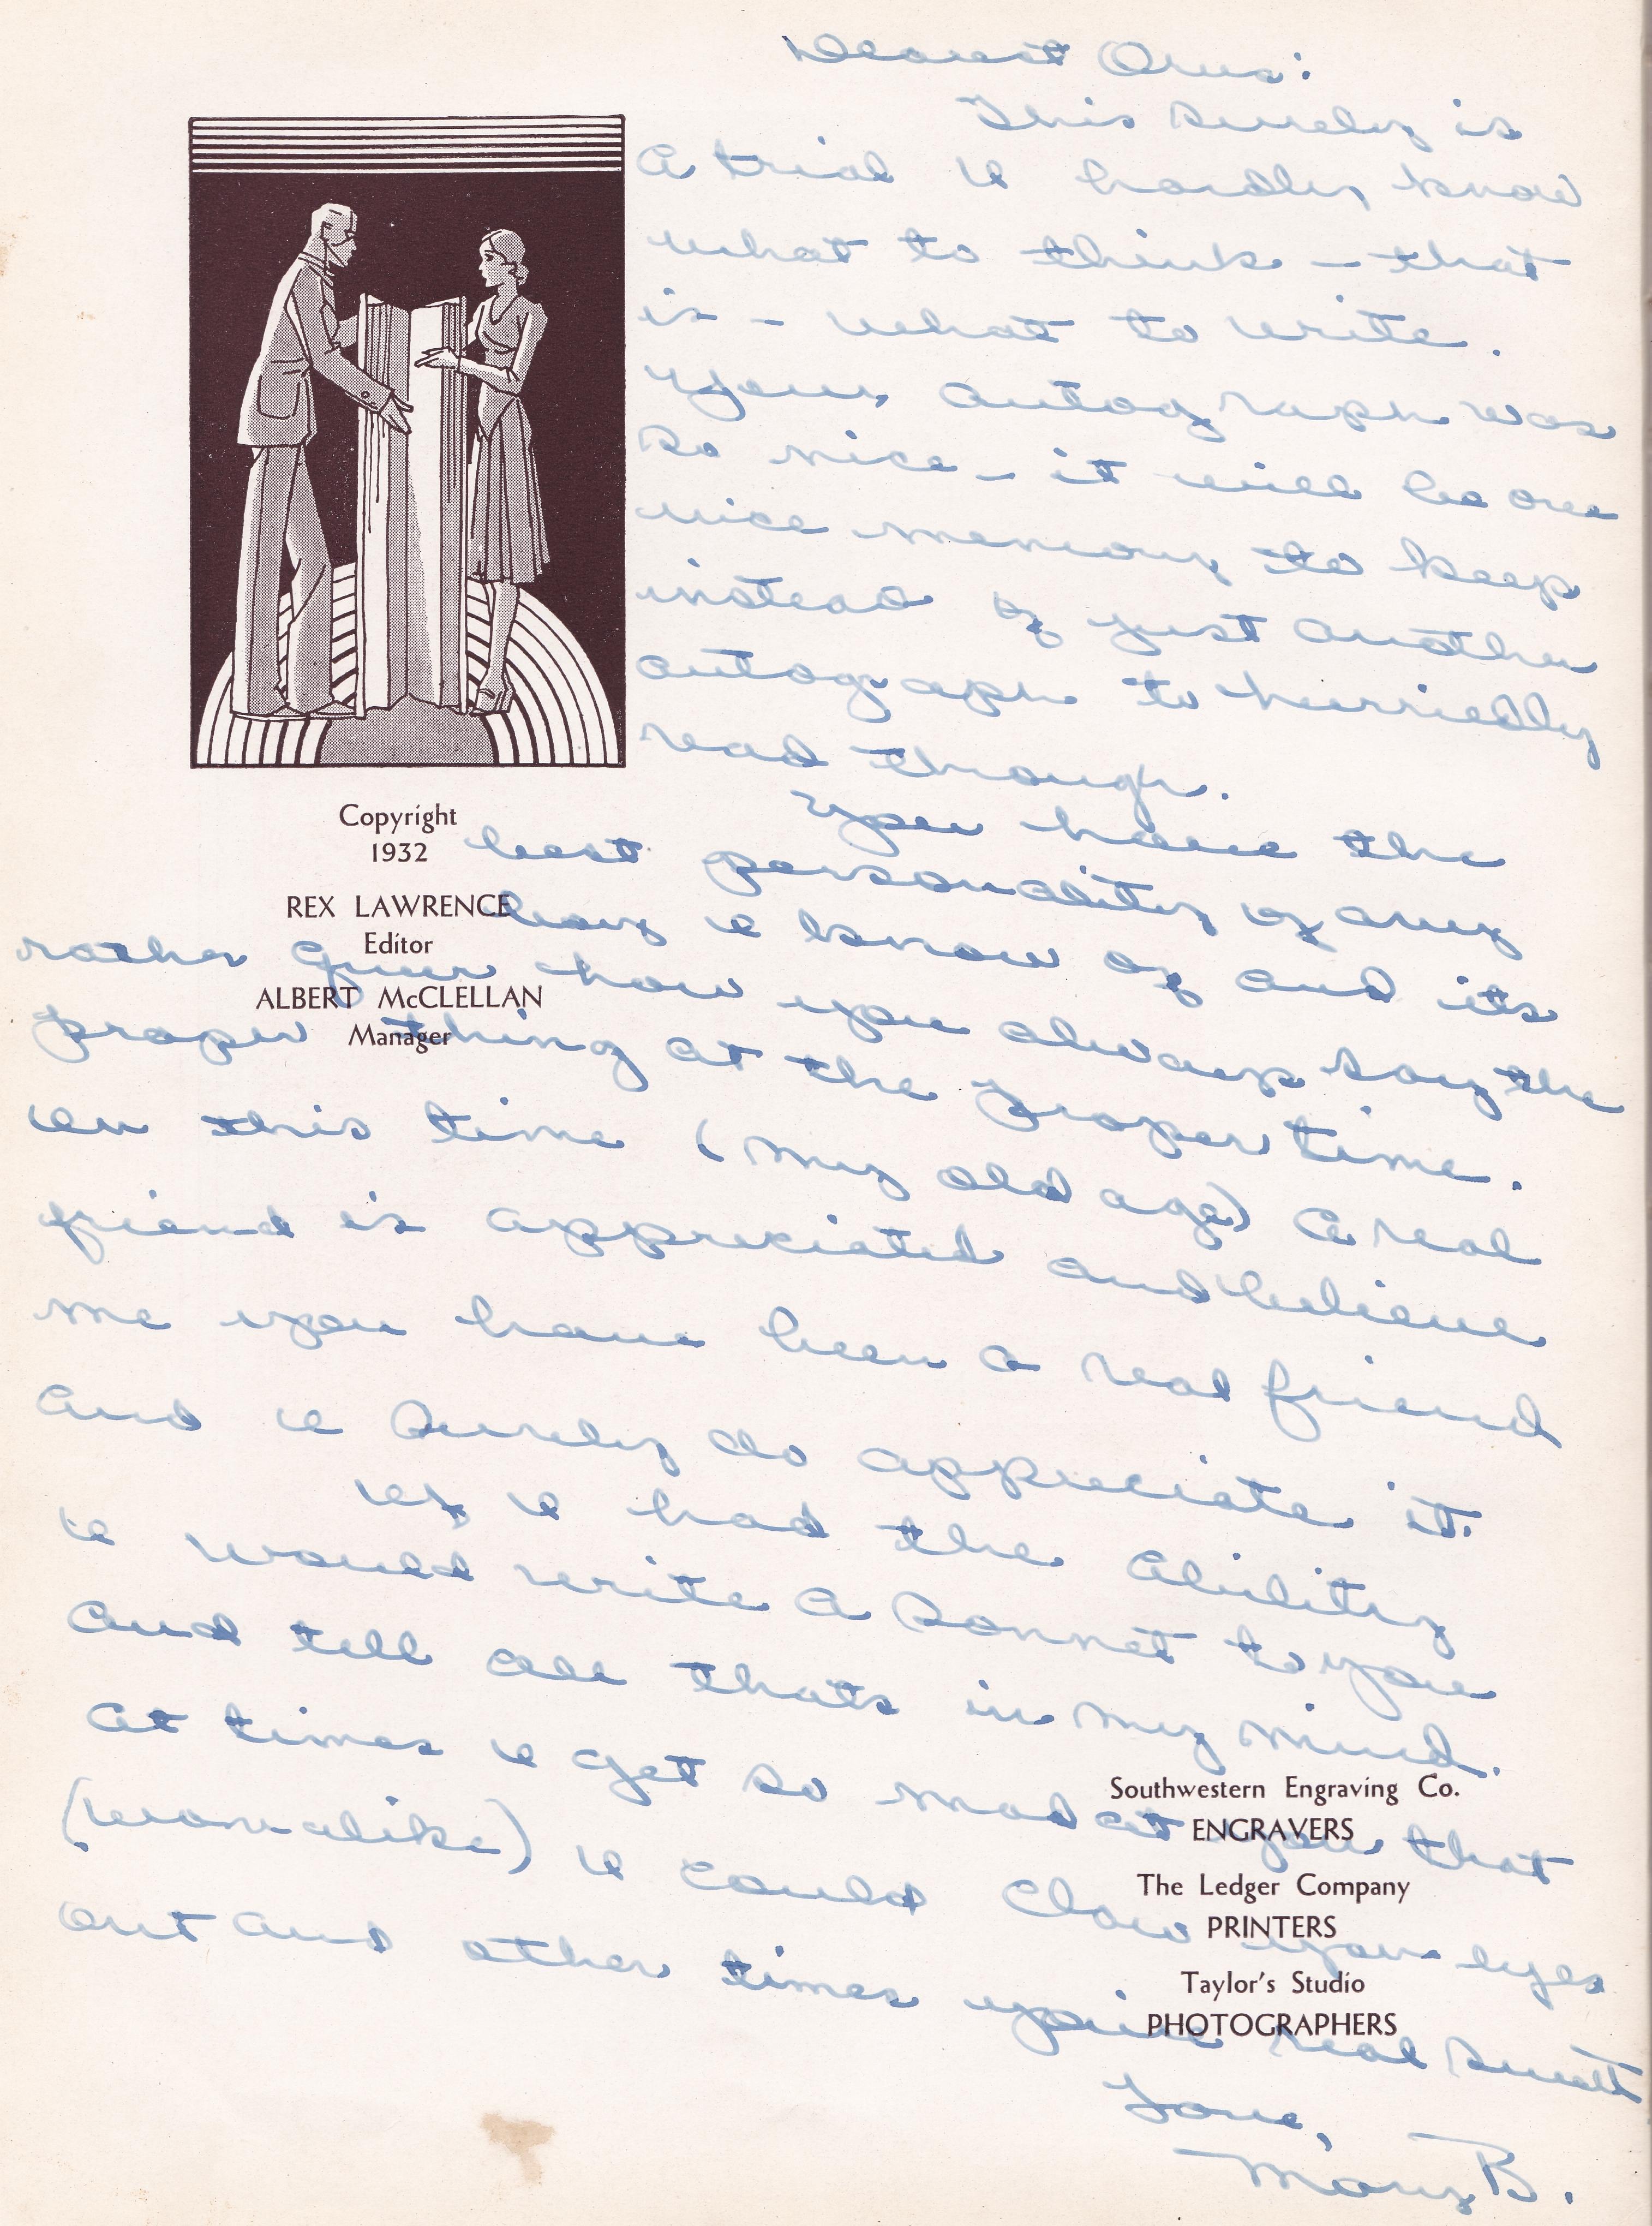 Dearest Orus:
This surely is
a trial I hardly know
what to think – that
is – what to write.
Your autograph was
so nice – it will be one
nice memory to keep
instead of just another
autograph to hurriedly
read though.
You have the
best personality of any
boy I know of and its
rather queer how you always say the
proper thing at the proper time.
In this time (my old age) a real
friend is appreciated and believe
me you have been a real friend
and I surely do appreciate it.
If I had the ability
I would write a sonnet to you
and tell all thats in my mind.
At times I get so mad at you that
(womanlike) I could claw your eyes
out and other times you're real sweet
Love,
Mary B.
Copyright
1932
REX LAWRENCE
Editor
ALBERT McCLELLAN
Manager
Southwestern Engraving Co.
ENGRAVERS
The Ledger Company
PRINTERS
Taylor's Studio
PHOTOGRAPHERS